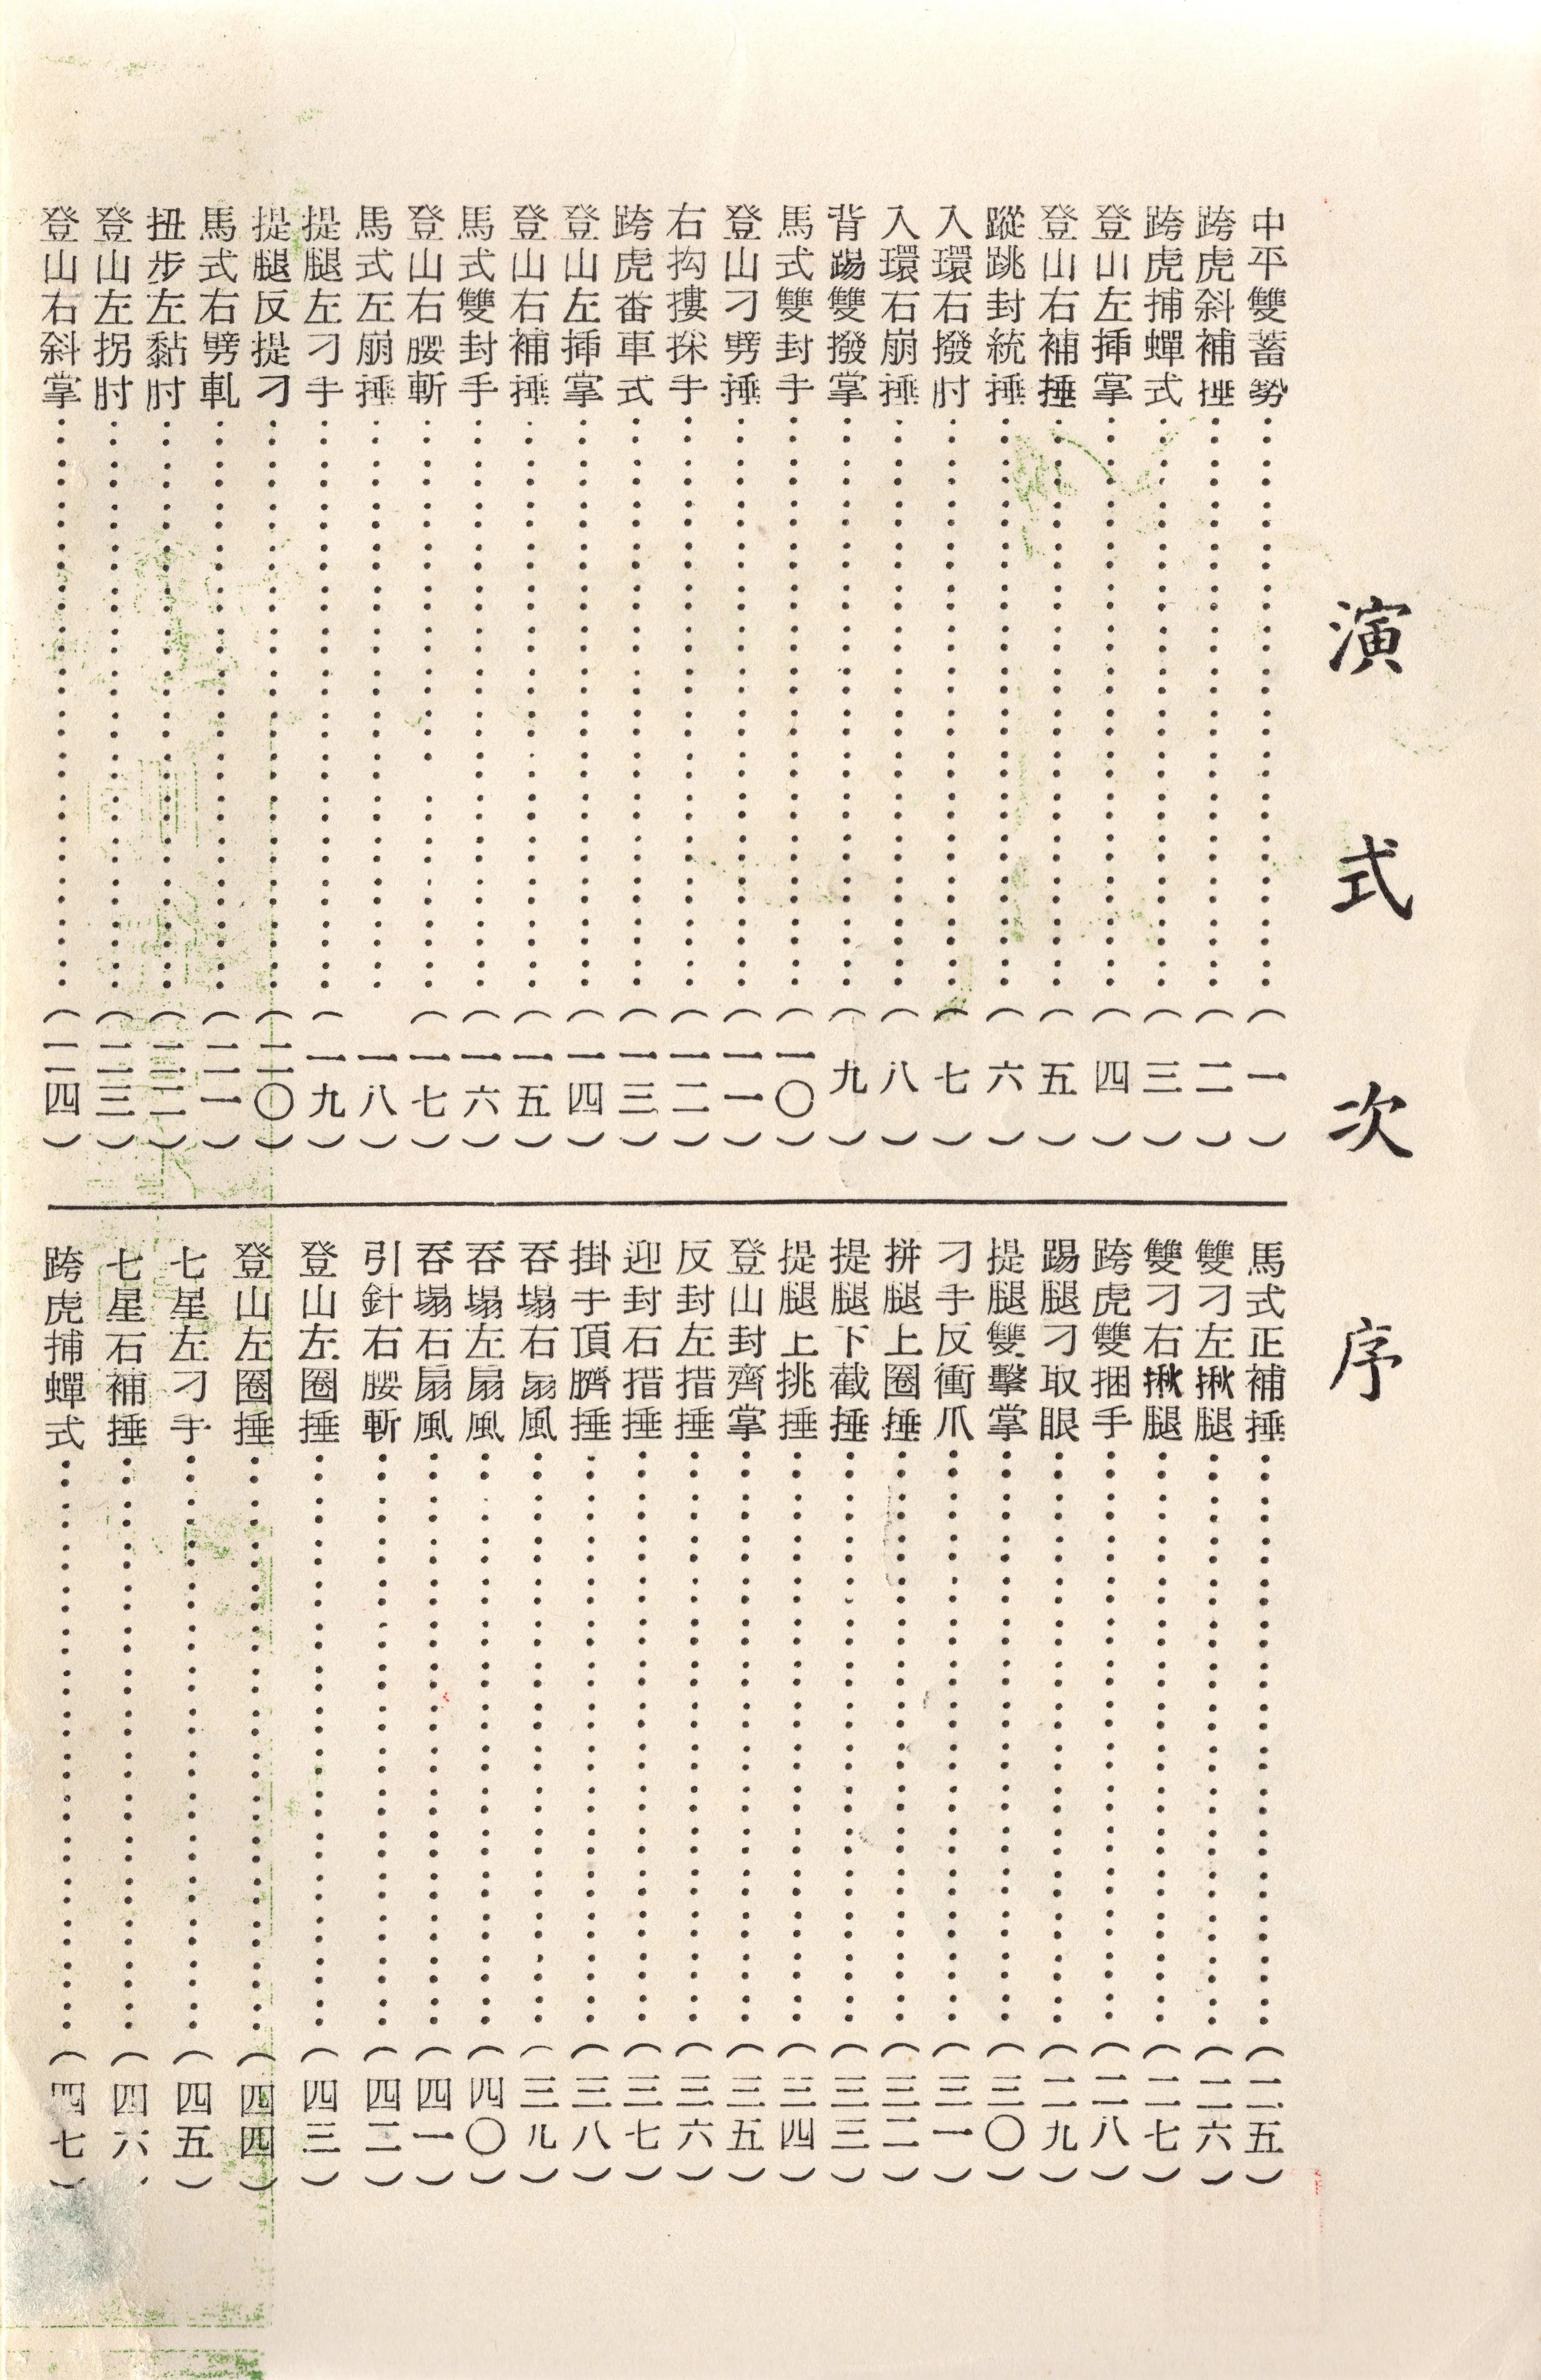 演式次序
中平雙蓄勢……(一)
跨虎斜補捶……(二)
跨虎捕蟬式……(三)
登山左揷掌……(四)
登山右補捶……(五)
蹤跳封統捶……(六)
入環右撥肘……(七)
入環右崩捶……(八)
背踢雙撥掌……(九)
馬式雙封手……(一〇)
登山刁劈捶……(一一)
右抅摟採手……(一二)
跨虎畨車式……(一三)
登山左揷掌……(一四)
登山右補捶……(一五)
馬式雙封手……(一六)
登山右腰斬……(一七)
馬式左崩捶……一八)
提腿左刁手……(一九)
提腿反提刁……(二〇)
馬式右劈軋……(二一)
扭步左黏肘……(二二)
登山左拐肘……(二三)
登山右斜掌……(二四)
馬式正補捶……(二五)
雙刁左揪腿……(二六)
雙刁右揪腿……(二七)
跨虎雙捆手……(二八)
踢腿刁取眼……(二九)
提腿雙擊掌……(三〇)
刁手反衝爪……(三一)
拼腿上圈捶……(三二)
提腿下截捶……(三三)
提腿上挑捶……(三四)
登山封齊掌……(三五)
反封左措捶……(三六)
迎封右措捶……(三七)
掛手頂臍捶……(三八)
吞塌右扇風……(三九)
吞塌左扇風……(四〇)
吞塌右扇風……(四一)
引針右腰斬……(四二)
登山左圈捶……(四三)
登山左圈捶……(四四)
七星左刁手……(四五)
七星右補捶……(四六)
跨虎捕蟬式……(四七)